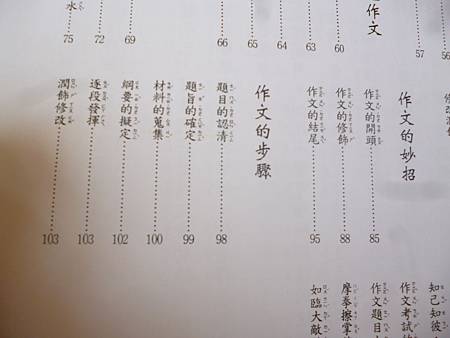 作文
57
60
63
64
65
66
69
72
水
75
作文的妙招
作文的開頭 85
作文的修飾 88
作文的結尾 95
作文的步驟
題目的認清 98
題旨的確定 99
材料的蒐集 100
綱要的擬定 102
逐段發揮 103
潤飾修改 103
知己知彼
作文考試的
作文題目
摩拳擦掌
如臨大敵